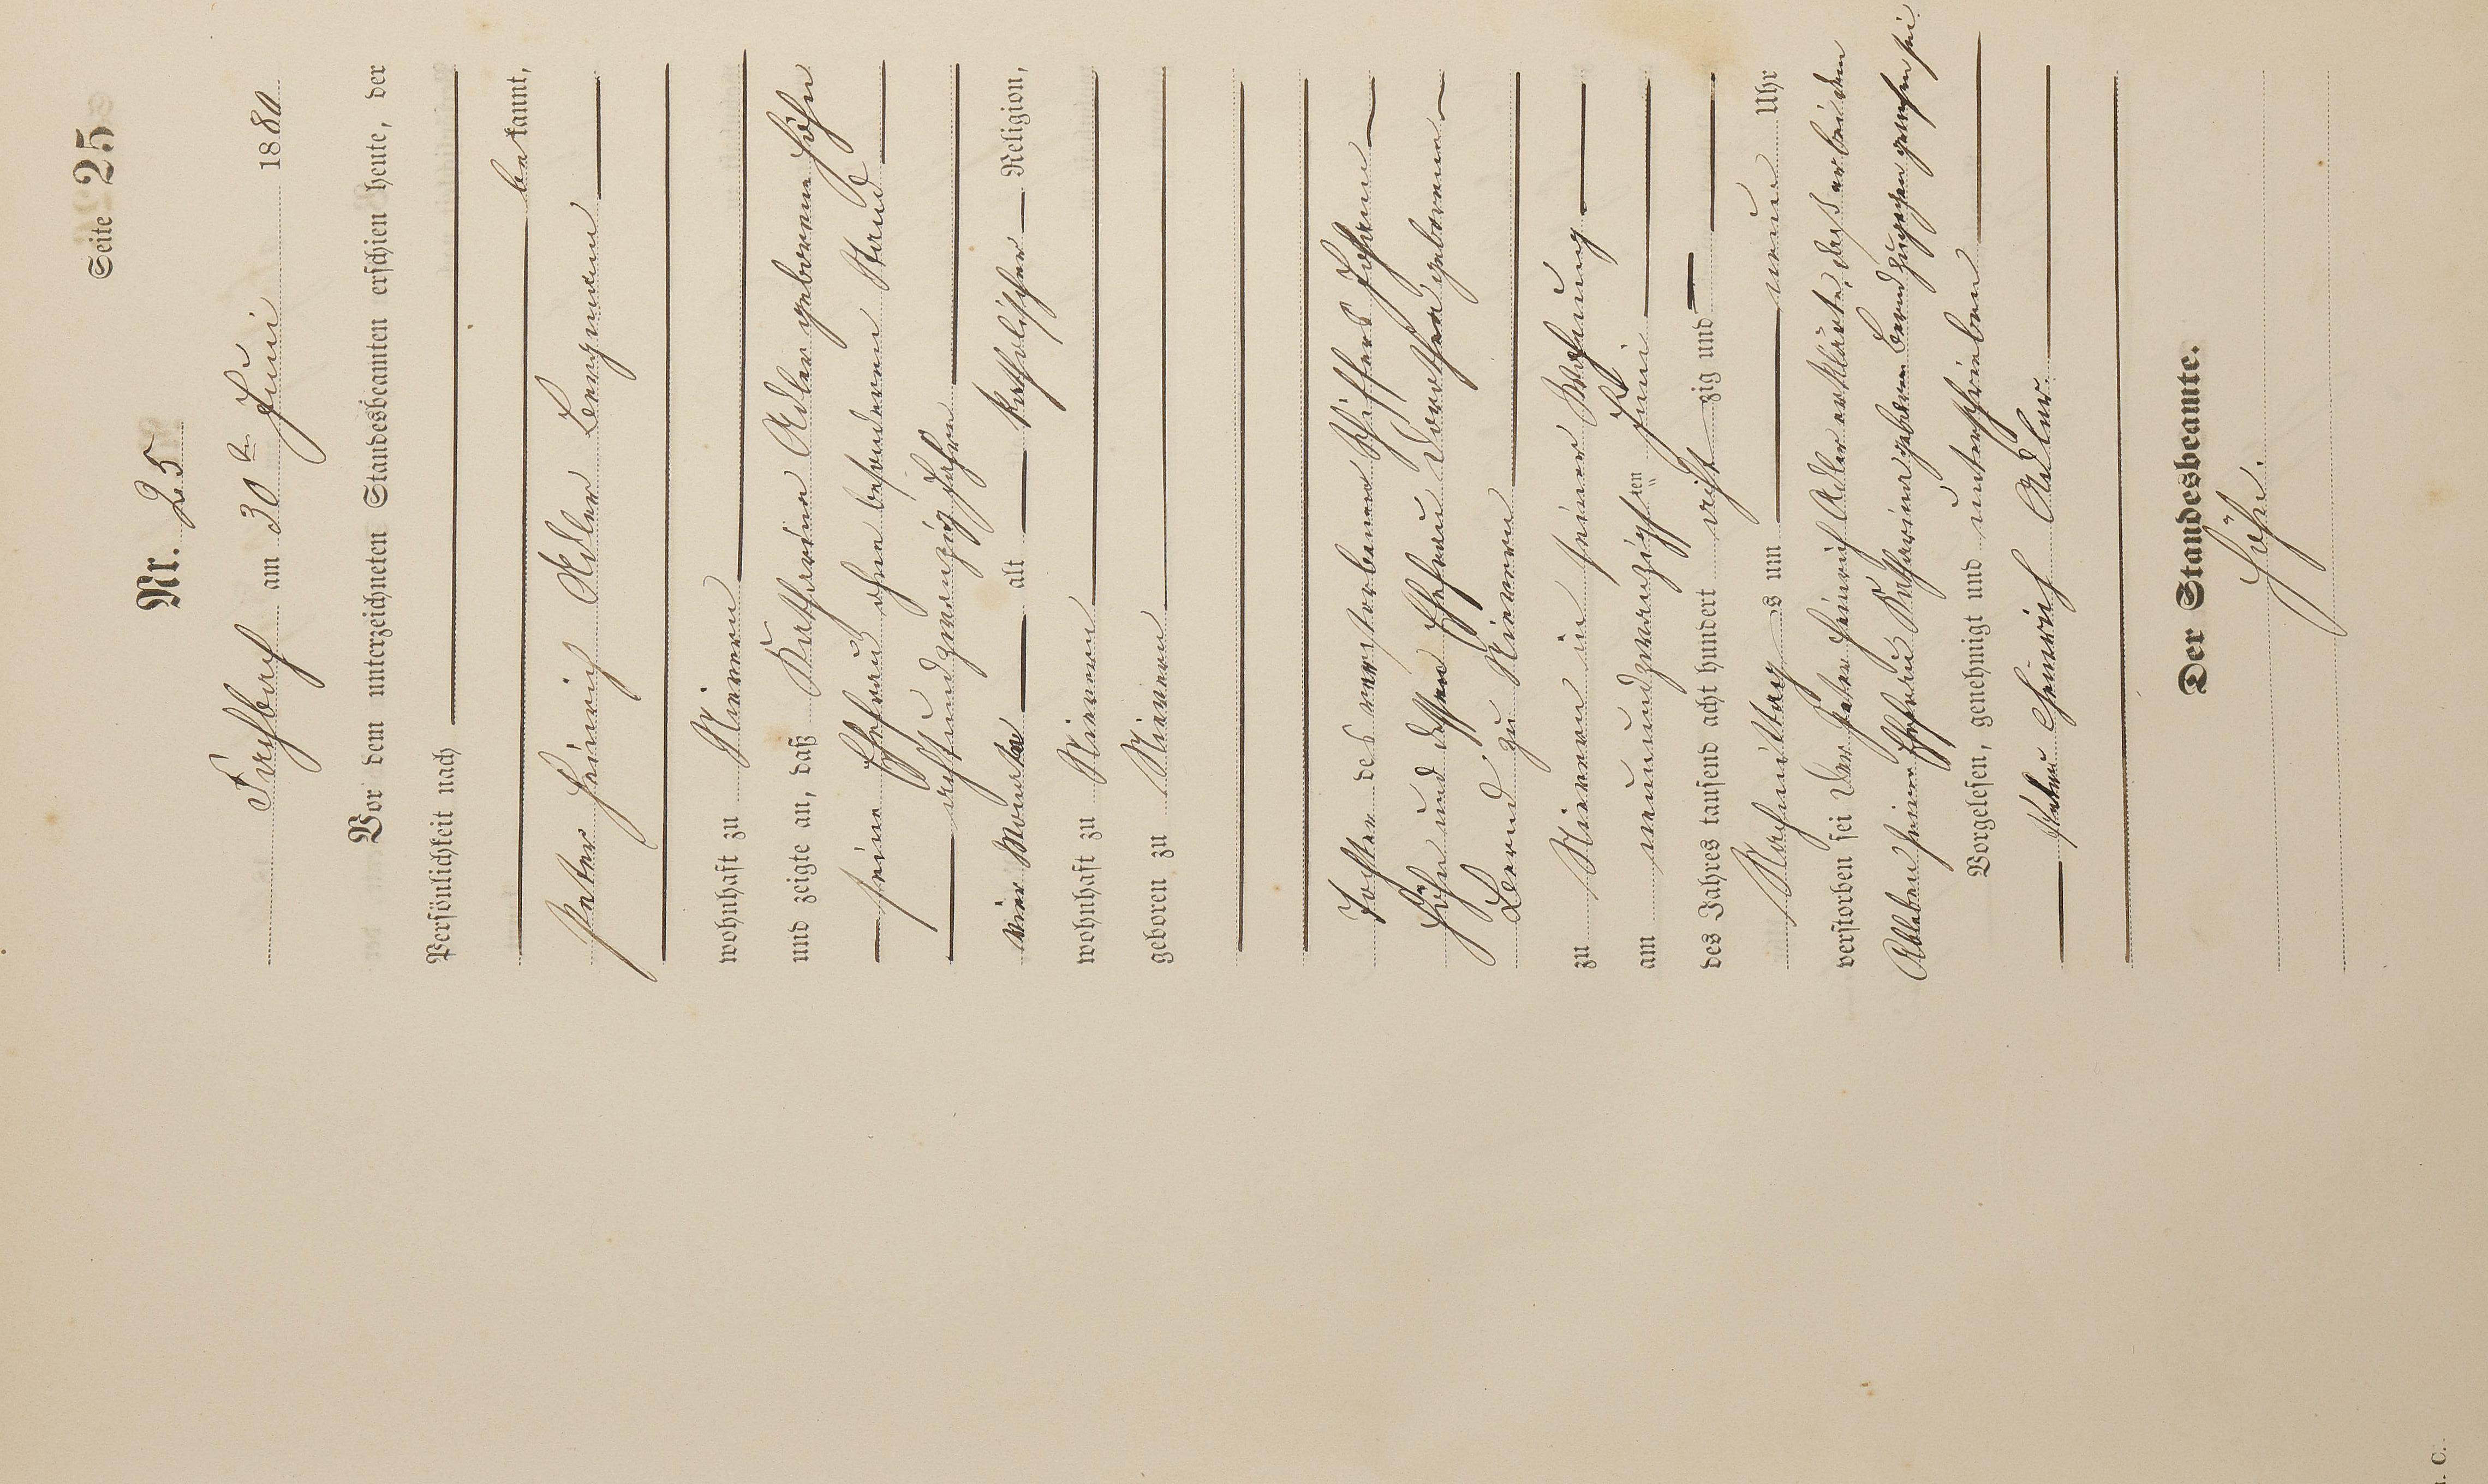 Seite 25
Nr. 25
Fachbach am 30ten Juni 1880
Vor dem unterzeichneten Standesbeamten erschien heute, der
Persönlichkeit nach
bekannt,
Peter Heinrich Adler Bergmann
wohnhaft zu Nievern
und zeigte an, daß Katharina Adler geborene Höhn
seine Ehefrau ohne besonderen Stand
achtundzwanzig Jahre
vier Monate alt katholischer Religion,
wohnhaft zu Nievern
geboren zu Nievern
Tochter des verstorbenen Schiffers Johann
Höhn und dessen Ehefrau Dorothea geborenen
Bernd, zu Nievern
zu Nievern in seiner Wohnung
am neunundzwanzigsten Juni
des Jahres tausend acht hundert achtzig und
Nachmittags um neun Uhr
verstorben sei Der Peter Heinrich Adler erklärte, daß er bei dem
Ableben seiner Ehefrau Katharina geborene Bernd zugegen gewesen sei
Vorgelesen, genehmigt und unterschrieben
Peter Heinrich Adler.
Der Standesbeamte.
Höhn.
C.